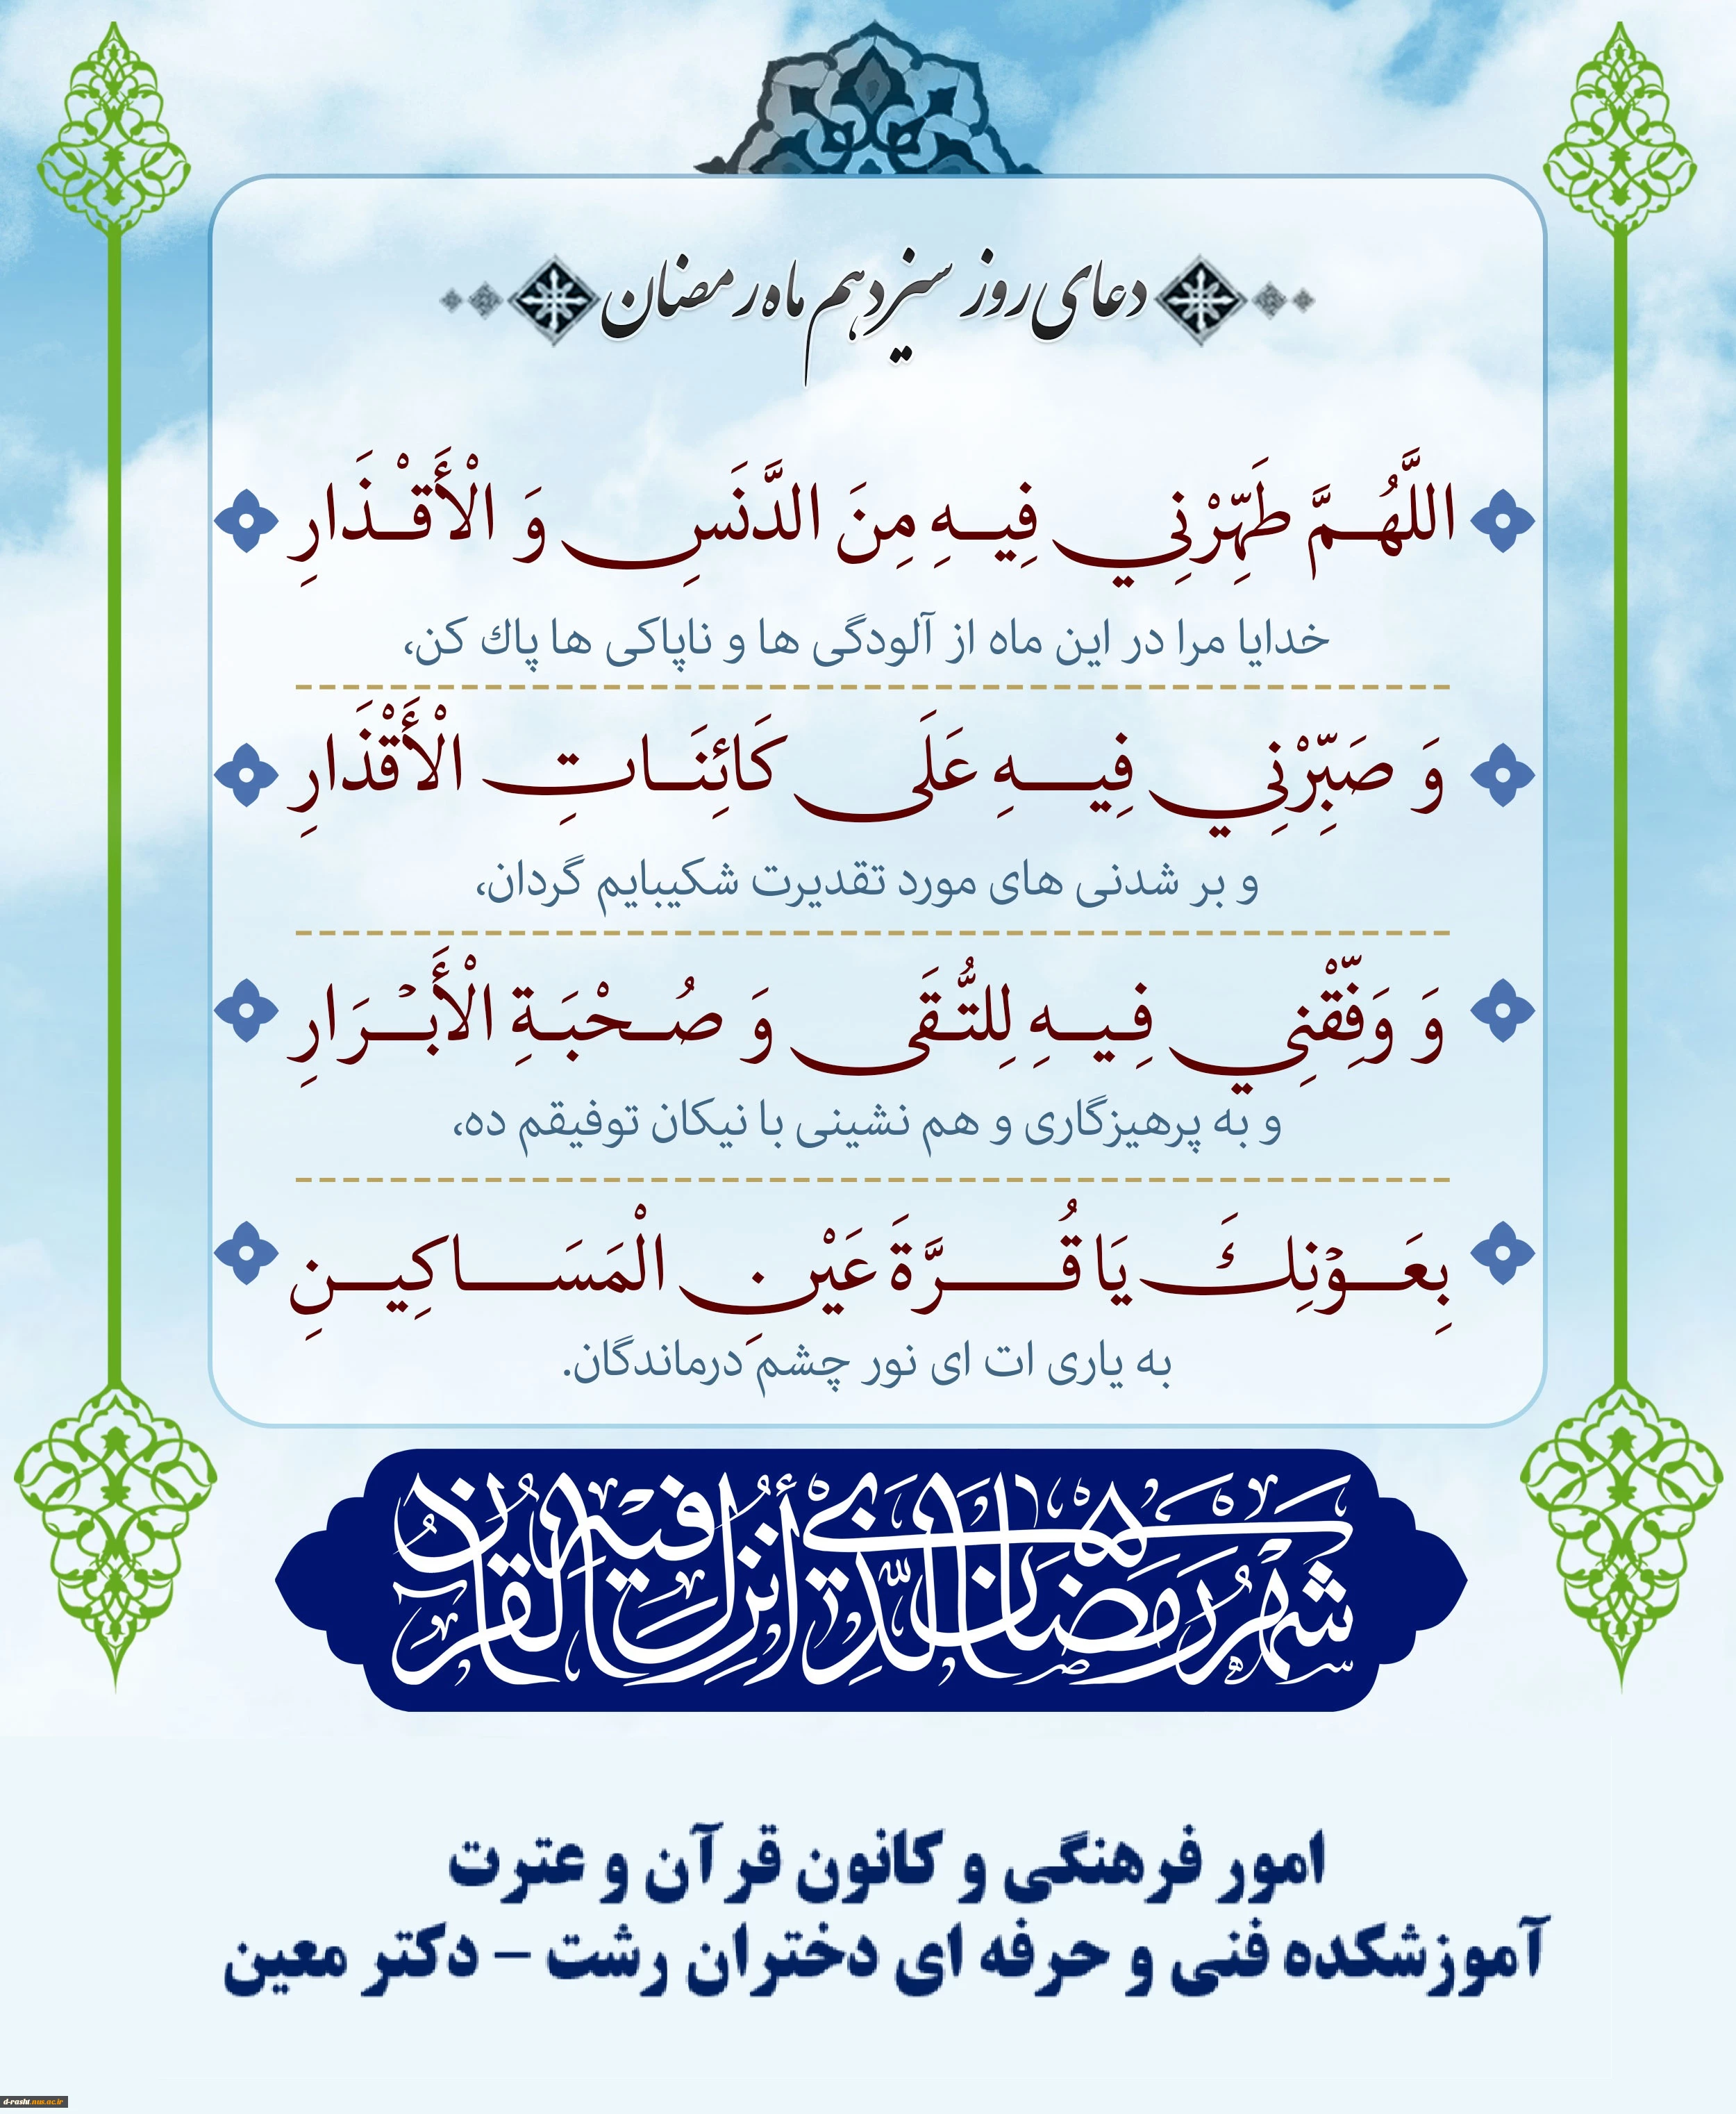 دعای روز سیزدهم ماه رمضان
اللَّهُمَّ طَهِّرْنِي فِيهِ مِنَ الدَّنَسِ وَ الْأَقْذَارِ
خدایا مرا در این ماه از آلودگی ها و ناپاکی ها پاك کن،
وَ صَبِّرْنِي فِيهِ عَلَى كَائِنَاتِ الْأَقْذَارِ
و بر شدنی های مورد تقدیرت شکیبایم گردان،
وَ وَفِّقْنِي فِيهِ لِلتُّقَى وَ صُحْبَةِ الْأَبْرَارِ
و به پرهیزگاری و هم نشینی با نیکان توفیقم ده،
بِعَوْنِكَ يَا قُرَّةَ عَيْنِ الْمَسَاكِينِ
به یاری ات ای نور چشم درماندگان.
شهر رمضان الذي أنزل فيه القرآن
امور فرهنگی و کانون قرآن و عترت
آموزشکده فنی و حرفه ای دختران رشت – دکتر معین
d-rasht.nus.ac.ir